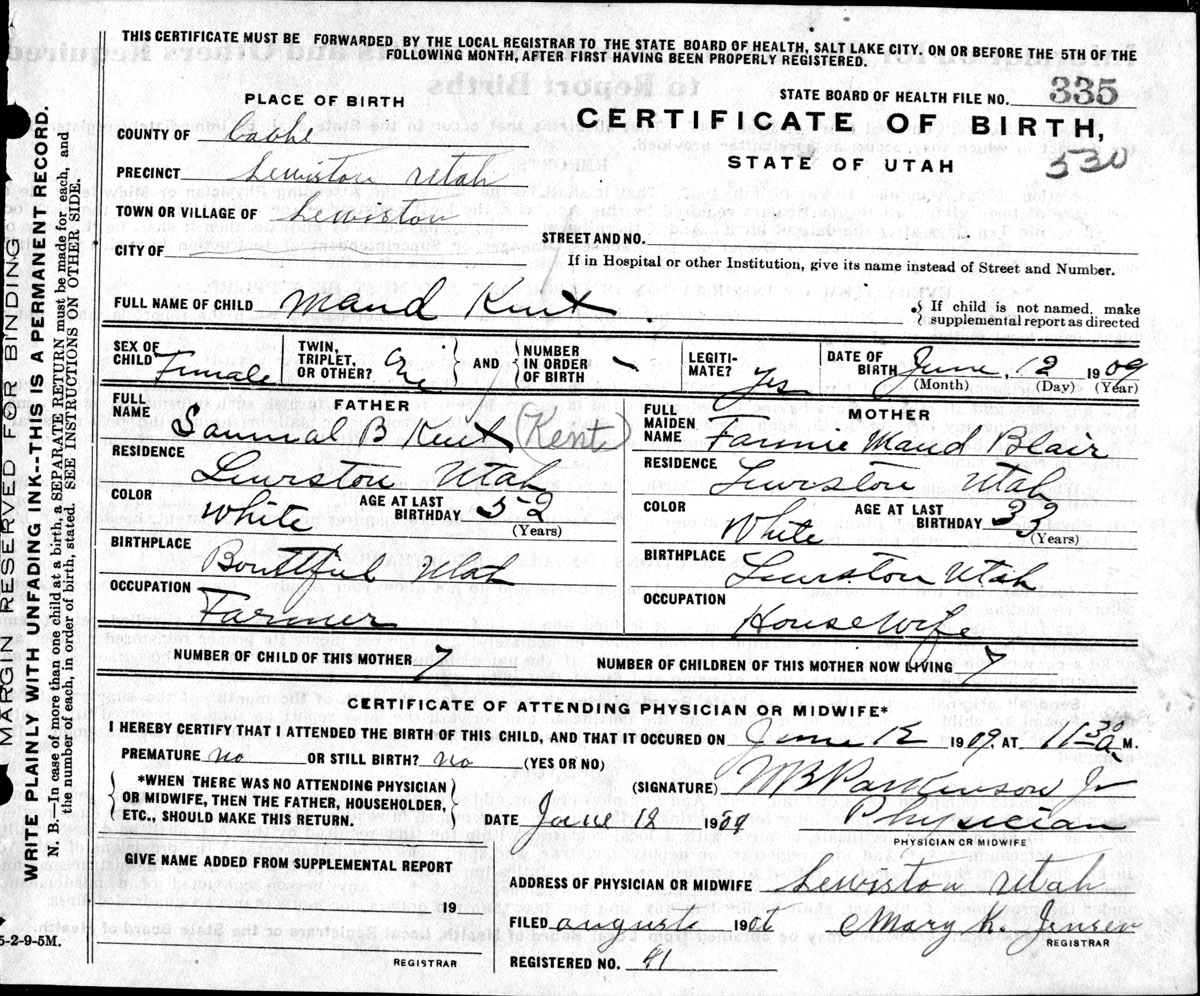 THIS CERTIFICATE MUST BE FORWARDED BY THE LOCAL REGISTRAR TO THE STATE BOARD OF HEALTH, SALT LAKE CITY. ON OR BEFORE THE 5TH OF THE
FOLLOWING MONTH, AFTER FIRST HAVING BEEN PROPERLY REGISTERED.
STATE BOARD OF HEALTH FILE NO. 335
PLACE OF BIRTH
CERTIFICATE OF BIRTH,
STATE OF UTAH
530
COUNTY OF Cache
PRECINCT Lewiston Utah
TOWN OR VILLAGE OF Lewiston
STREET AND NO.
CITY OF
If in Hospital or other Institution, give its name instead of Street and Number.
FULL NAME OF CHILD Maud Kent .
If child is not named, make
supplemental report as directed
SEX OF CHILD Female TWIN, TRIPLET, OR OTHER? One AND NUMBER IN ORDER OF BIRTH LEGITI-MATE? Yes DATE OF BIRTH June, 12 1909
(Month) (Day) (Year)
FATHER
FULL NAME Samual B Kent (Kent)
RESIDENCE Lewiston Utah
COLOR White AGE AT LAST BIRTHDAY 52
(Years)
BIRTHPLACE Bountiful Utah
OCCUPATION Farmer
MOTHER
FULL MAIDEN NAME Fannie Maud Blair
RESIDENCE Lewiston Utah
COLOR White AGE AT LAST BIRTHDAY 33
(Years)
BIRTHPLACE Lewiston Utah
OCCUPATION Housewife
NUMBER OF CHILD OF THIS MOTHER 7 NUMBER OF CHILDREN OF THIS MOTHER NOW LIVING 7
CERTIFICATE OF ATTENDING PHYSICIAN OR MIDWIFE*
I HEREBY CERTIFY THAT I ATTENDED THE BIRTH OF THIS CHILD, AND THAT IT OCCURED ON June 12 1909. AT 11 30 a. M.
PREMATURE no OR STILL BIRTH? no (YES OR NO)
*WHEN THERE WAS NO ATTENDING PHYSICIAN
OR MIDWIFE, THEN THE FATHER, HOUSEHOLDER,
ETC., SHOULD MAKE THIS RETURN.
(SIGNATURE) WB Parkinson Jr
DATE June 12 1909 Physician
PHYSICIAN OR MIDWIFE
GIVE NAME ADDED FROM SUPPLEMENTAL REPORT
19
REGISTRAR
ADDRESS OF PHYSICIAN OR MIDWIFE Lewiston Utah
FILED august 190 Mary K. Jensen
REGISTRAR
REGISTERED NO. 41
MARGIN RESERVED FOR BINDING
WRITE PLAINLY WITH UNFADING INK--THIS IS A PERMANENT RECORD.
N. B.--In case of more than one child at a birth, a SEPARATE RETURN must be made for each, and
the number of each, in order of birth, stated. SEE INSTRUCTIONS ON OTHER SIDE.
5-2-9-5M.